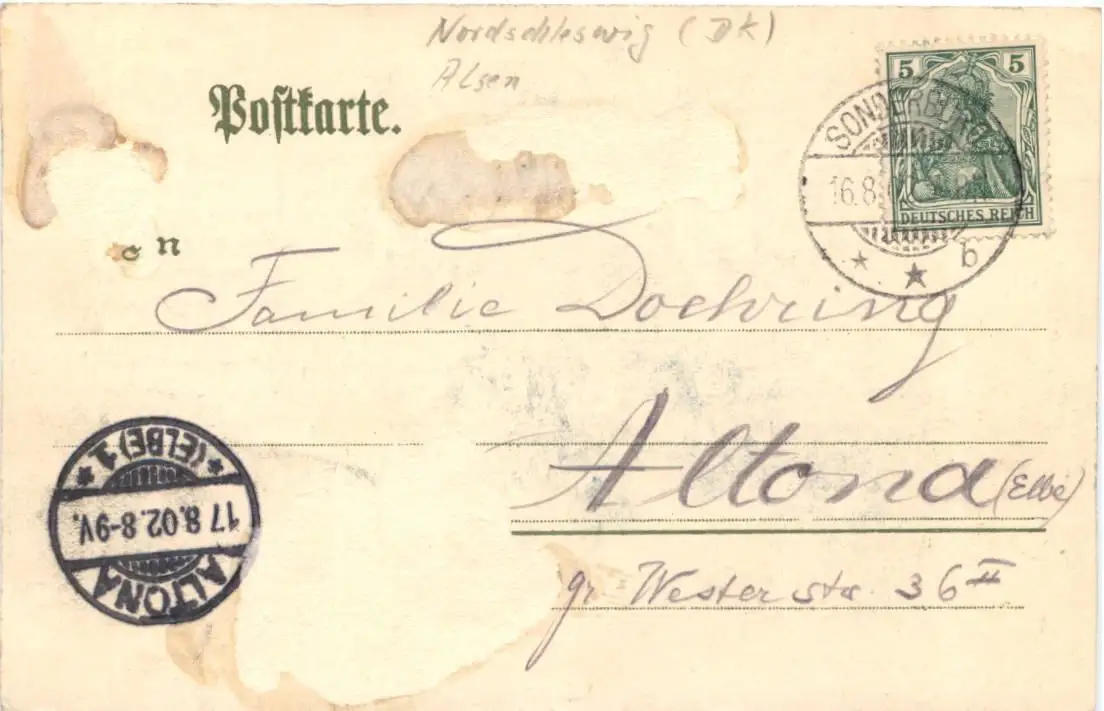 Nordschleswig (DK)
Alsen
Postkarte.
5 5
DEUTSCHES REICH
SONDERBURG
16.8
b
n
Familie Doehring
Altona (Elbe)
gr. Westerstr. 36 II
ALTONA
17.8.02.8-9V.
* (ELBE) 1 *